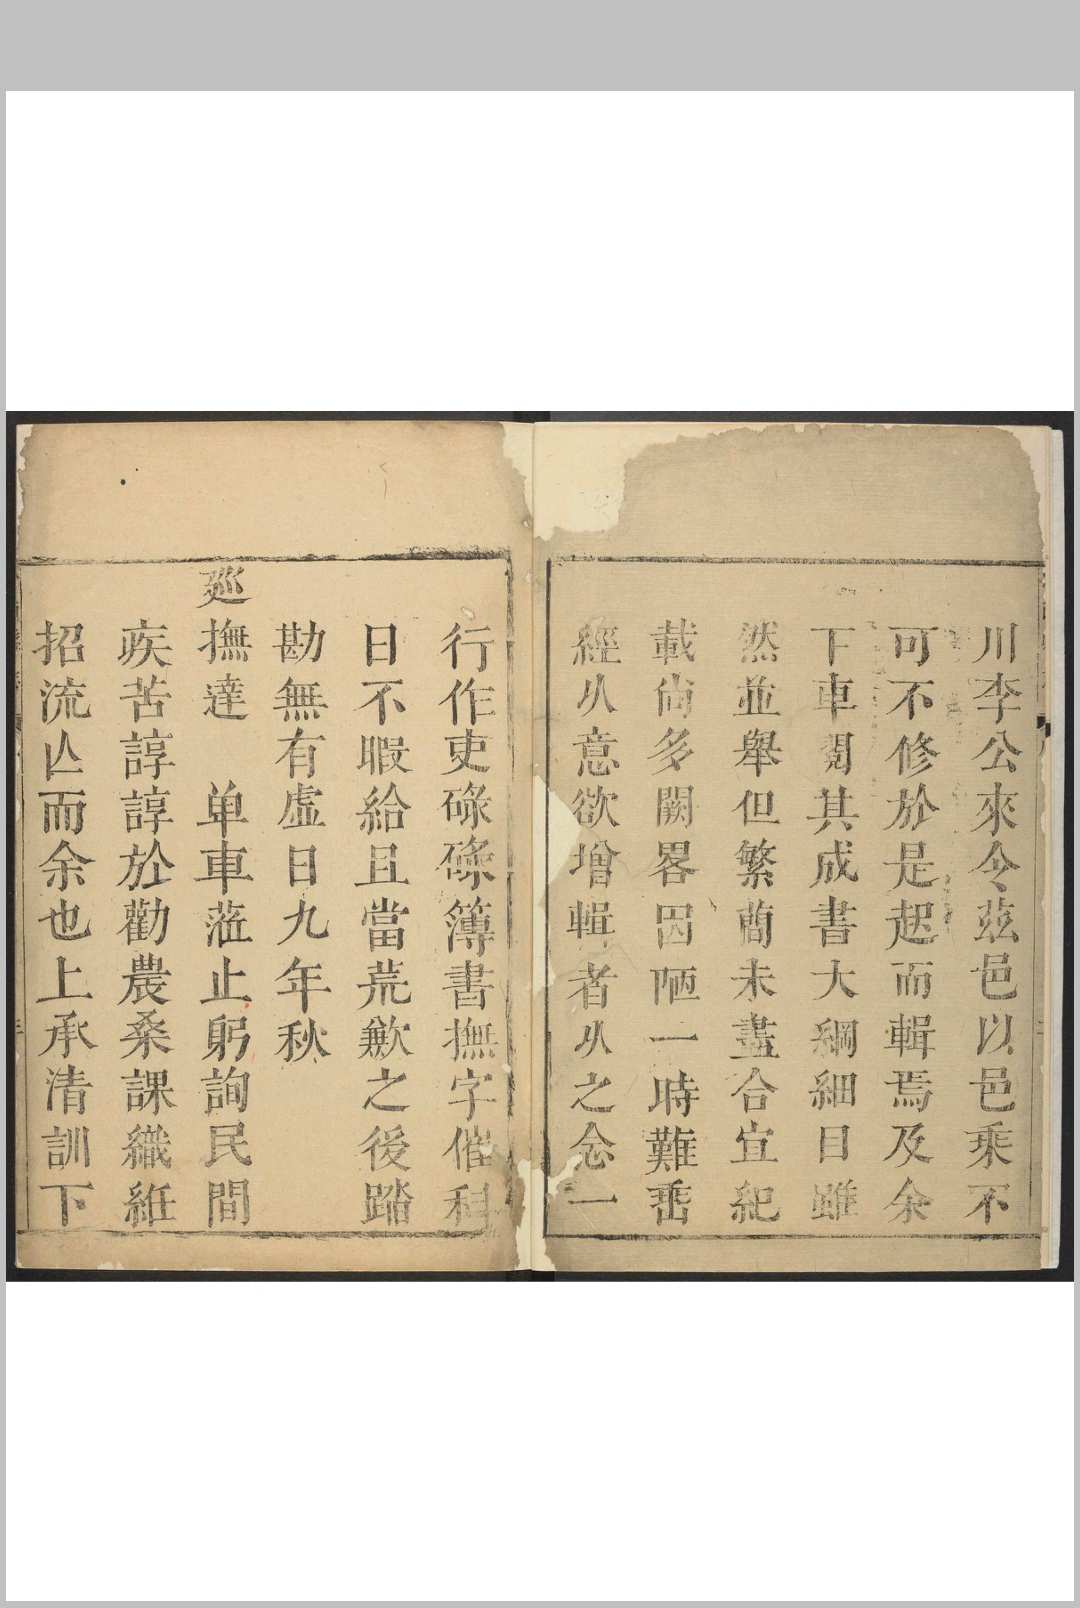 川李公來令茲邑以邑乘不
可不修於是起而輯焉及余
下車閱其成書大綱細目雖
然並舉但繁蕳未盡合宜紀
載尙多闕畧因陋一時難垂
經乆意欲增輯者乆之念一
行作吏碌碌簿書撫字催科
日不暇給且當荒歉之後踏
勘無有虛日九年秋
廵撫達　单車蒞止躬詢民間
疾苦諄諄於勸農桑課織絍
招流亾而余也上承清訓下